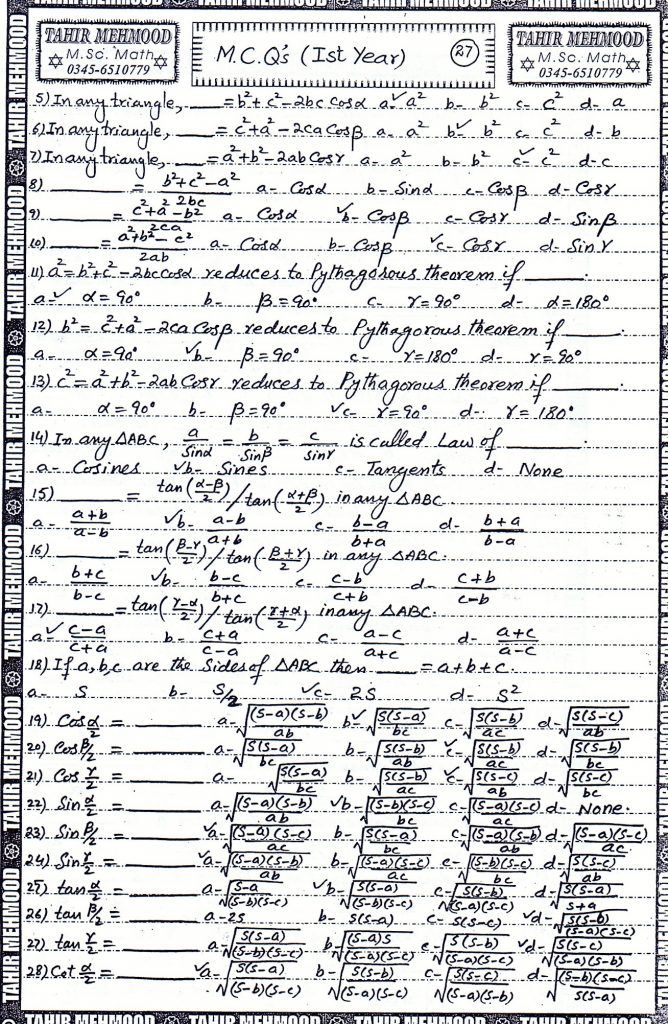 TAHIR MEHMOOD
M.Sc. Math
0345-6510779
M.C.Q's (Ist Year)
27
TAHIR MEHMOOD
M.Sc. Math
0345-6510779
5) In any triangle, ___ = b²+c²-2bc cosα a-✓ a² b- b² c- c² d- a
6) In any triangle, ___ = c²+a²-2ca Cosβ a- a² b✓ b² c- c² d- b
7) In any triangle, ___ = a²+b²-2ab Cosγ a- a² b- b² c✓ c² d- c
8) ___ = (b²+c²-a²)/2bc a- Cosα b- Sinα c- Cosβ d- Cosγ
9) ___ = (c²+a²-b²)/2ca a- Cosα ✓b- Cosβ c- Cosγ d- Sinβ
10) ___ = (a²+b²-c²)/2ab a- Cosα b- Cosβ ✓c- Cosγ d- Sinγ
11) a²=b²+c²-2bc cosα reduces to Pythagorous theorem if ___ :
a-✓ α=90° b- β=90° c- γ=90° d- α=180°
12) b²=c²+a²-2ca Cosβ reduces to Pythagorous theorem if ___ :
a- α=90° ✓b- β=90° c- γ=180° d- γ=90°
13) c²=a²+b²-2ab Cosγ reduces to Pythagorous theorem if ___ :
a- α=90° b- β=90° ✓c- γ=90° d- γ=180°
14) In any ΔABC, a/Sinα = b/Sinβ = c/Sinγ is called Law of ___ :
a- Cosines ✓b- Sines c- Tangents d- None
15) ___ = tan((α-β)/2)/tan((α+β)/2) in any ΔABC.
a- (a+b)/(a-b) ✓b- (a-b)/(a+b) c- (b-a)/(b+a) d- (b+a)/(b-a)
16) ___ = tan((β-γ)/2)/tan((β+γ)/2) in any ΔABC.
a- (b+c)/(b-c) ✓b- (b-c)/(b+c) c- (c-b)/(c+b) d- (c+b)/(c-b)
17) ___ = tan((γ-α)/2)/tan((γ+α)/2) in any ΔABC.
a✓ (c-a)/(c+a) b- (c+a)/(c-a) c- (a-c)/(a+c) d- (a+c)/(a-c)
18) If a,b,c are the Sides of ΔABC then ___ = a+b+c.
a- S b- S/2 ✓c- 2S d- S²
19) Cos α/2 = ___ a- √((S-a)(S-b)/ab) b✓ √(S(S-a)/bc) c- √(S(S-b)/ac) d- √(S(S-c)/ab)
20) Cos β/2 = ___ a- √(S(S-a)/bc) b- √(S(S-b)/ab) ✓c- √(S(S-b)/ac) d- √(S(S-b)/bc)
21) Cos γ/2 = ___ a- √(S(S-a)/bc) b- √(S(S-b)/ac) ✓c- √(S(S-c)/ab) d- √(S(S-c)/bc)
22) Sin α/2 = ___ a- √((S-a)(S-b)/ab) ✓b- √((S-b)(S-c)/bc) c- √((S-a)(S-c)/ac) d- None.
23) Sin β/2 = ___ ✓a- √((S-a)(S-c)/ac) b- √(S(S-a)/bc) c- √((S-a)(S-b)/ab) d- √((S-a)(S-c)/ac)
24) Sin γ/2 = ___ ✓a- √((S-a)(S-b)/ab) b- √((S-a)(S-c)/ac) c- √((S-b)(S-c)/bc) d- √(S(S-c)/ab)
25) tan α/2 = ___ a- √(S-a/(S-b)(S-c)) ✓b- √(S(S-a)/(S-b)(S-c)) c- √(S(S-b)/(S-a)(S-c)) d- √(S(S-a)/S+a)
26) tan β/2 = ___ a- 2S b- S(S-a) c- S(S-c) ✓d- √(S(S-b)/(S-a)(S-c))
27) tan γ/2 = ___ a- √(S(S-a)/(S-b)(S-c)) b- √((S-a)S/(S-b)(S-c)) c- √(S(S-b)/(S-a)(S-c)) ✓d- √(S(S-c)/(S-a)(S-b))
28) Cot α/2 = ___ ✓a- √(S(S-a)/(S-b)(S-c)) b- √(S(S-b)/(S-a)(S-c)) c- √(S(S-c)/(S-a)(S-b)) d- √((S-b)(S-c)/S(S-a))
TAHIR MEHMOOD